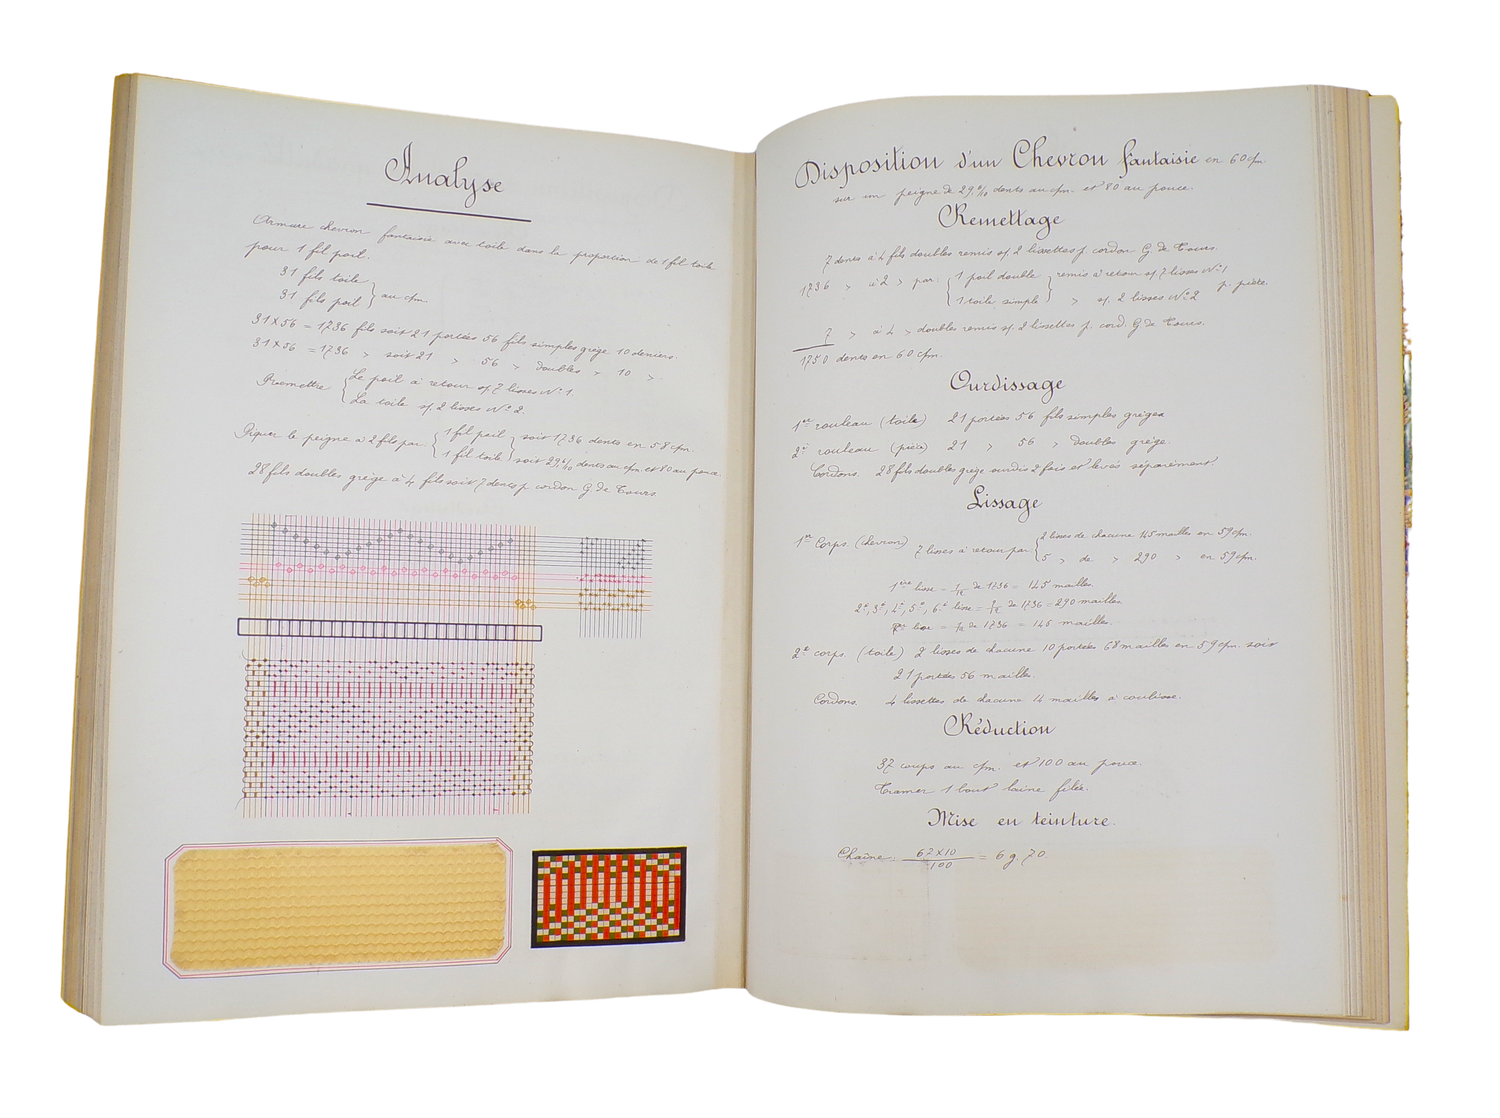 Analyse
Armure chevron fantaisie avec toile dans la proportion de 1 fil toile
pour 1 fil poil.
31 fils toile
31 fils poil } au c/m.
31 x 56 = 1736 fils soit 21 portées 56 fils simples grège 10 deniers.
31 x 56 = 1736 > soit 21 > 56 > doubles > 10 >
Remettre { Le poil à retour s/ 7 lisses N° 1.
La toile s/ 2 lisses N° 2.
Piquer le peigne à 2 fils par { 1 fil poil } soit 1736 dents en 58 c/m.
1 fil toile } soit 29 6/10 dents au c/m et 80 au pouce.
28 fils doubles grège à 4 fils soit 7 dents p cordon G de Tours
Disposition d'un Chevron fantaisie en 60 c/m.
sur un peigne de 29 6/10 dents au c/m. et 80 au pouce.
Remettage
7 dents à 4 fils doubles remis s/ 2 lissettes p cordon G de Tours.
1736 > à 2 > par { 1 poil double } remis à retour s/ 7 lisses N° 1
1 toile simple } > s/ 2 lisses N° 2 p. pièce.
7 > à 4 > doubles remis s/ 2 lissettes p. cord. G de Tours.
1750 dents en 60 c/m.
Ourdissage
1er rouleau (toile) 21 portées 56 fils simples grèges
2e rouleau (pièce) 21 > 56 > doubles grège.
Cordons. 28 fils doubles grège ourdis 2 fois et levés séparément.
Lissage
1er Corps (chevron) 7 lisses à retour par { 2 lisses de chacune 145 mailles en 59 c/m.
5 > de > 290 > en 59 c/m.
1ère lisse = 1/12 de 1736 = 145 mailles.
2e, 3e, 4e, 5e, 6e lisse = 1/6 de 1736 = 290 mailles
7e lisse = 1/12 de 1736 = 145 mailles.
2e corps. (toile) 2 lisses de chacune 10 portées 68 mailles en 59 c/m. soit
21 portées 56 mailles.
Cordons. 4 lissettes de chacune 14 mailles à coulisse.
Réduction
37 coups au c/m. et 100 au pouce.
Tramer 1 bout laine filée.
Mise en teinture.
Chaîne. 67 x 10
100 = 6 g. 70